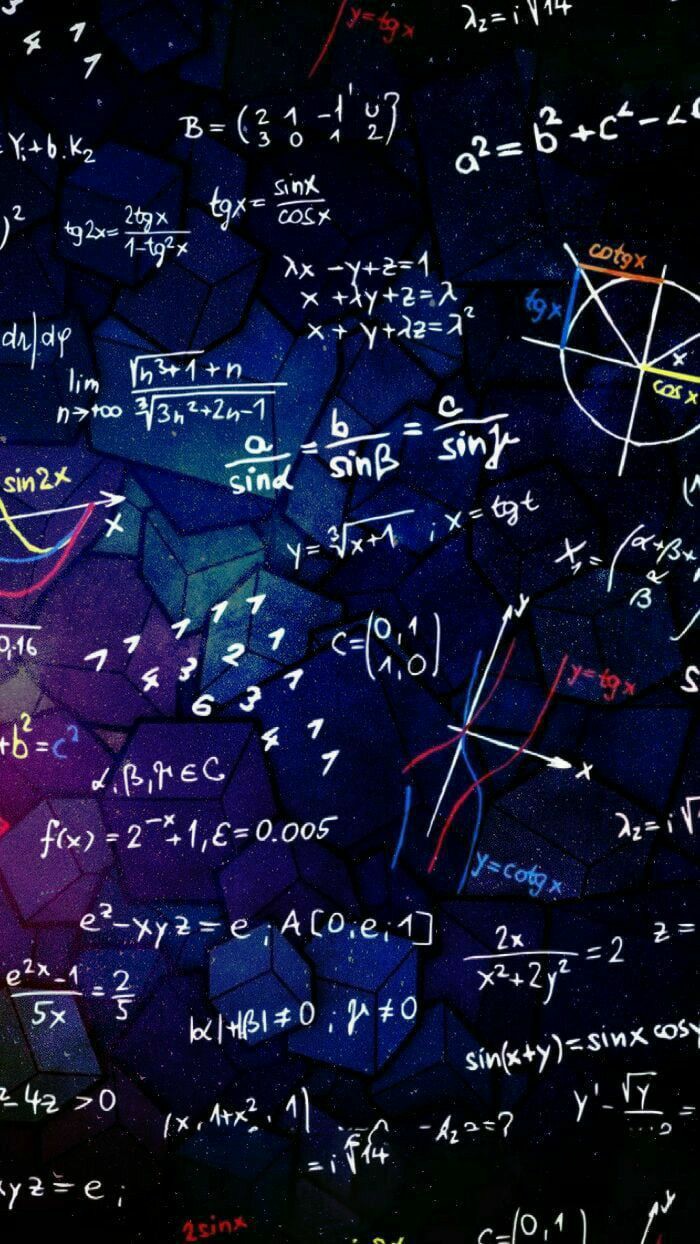 3
4 1
1
y=tgx
λ₂=i√14
B=(2 1 -1 0
3 0 1 2)
a²=b²+c²-2
=Yᵢ+b.K₂
)²
tg2x=2tgx/1-tg²x
tgx=sinx/cosx
λx-y+z=1
x+λy+z=λ
x+y+λz=λ²
cotgx
tgx
x
cosx
dr/dφ
lim n→+∞ √n³+1+n/∛3n²+2n-1
a/sinα=b/sinβ=c/sinγ
sin2x
x
y=∛x+1 ; x=tgt
X₁=(α+βx,
α
β
0,16
1 1 1 1 1
4 3 2 1
6 3 1
4 1
1
C=(0,1
1,0)
y
y=tgx
x
y=cotgx
+b²=c²
α,β,γ∈C
f(x)=2⁻ˣ+1,ε=0.005
λ₂=i√
e²-xyz=e; A[0;e;1]
2x/x²+2y²=2
z=
e²ˣ-1/5x=2/5
|α|+|β|≠0 ; γ≠0
sin(x+y)=sinx cosy
²-4z>0
(x,1+x²,1)
-λ₂=?
=i√14
y'-√y/ =
xyz=e;
2sinx
C=(0,1)
y